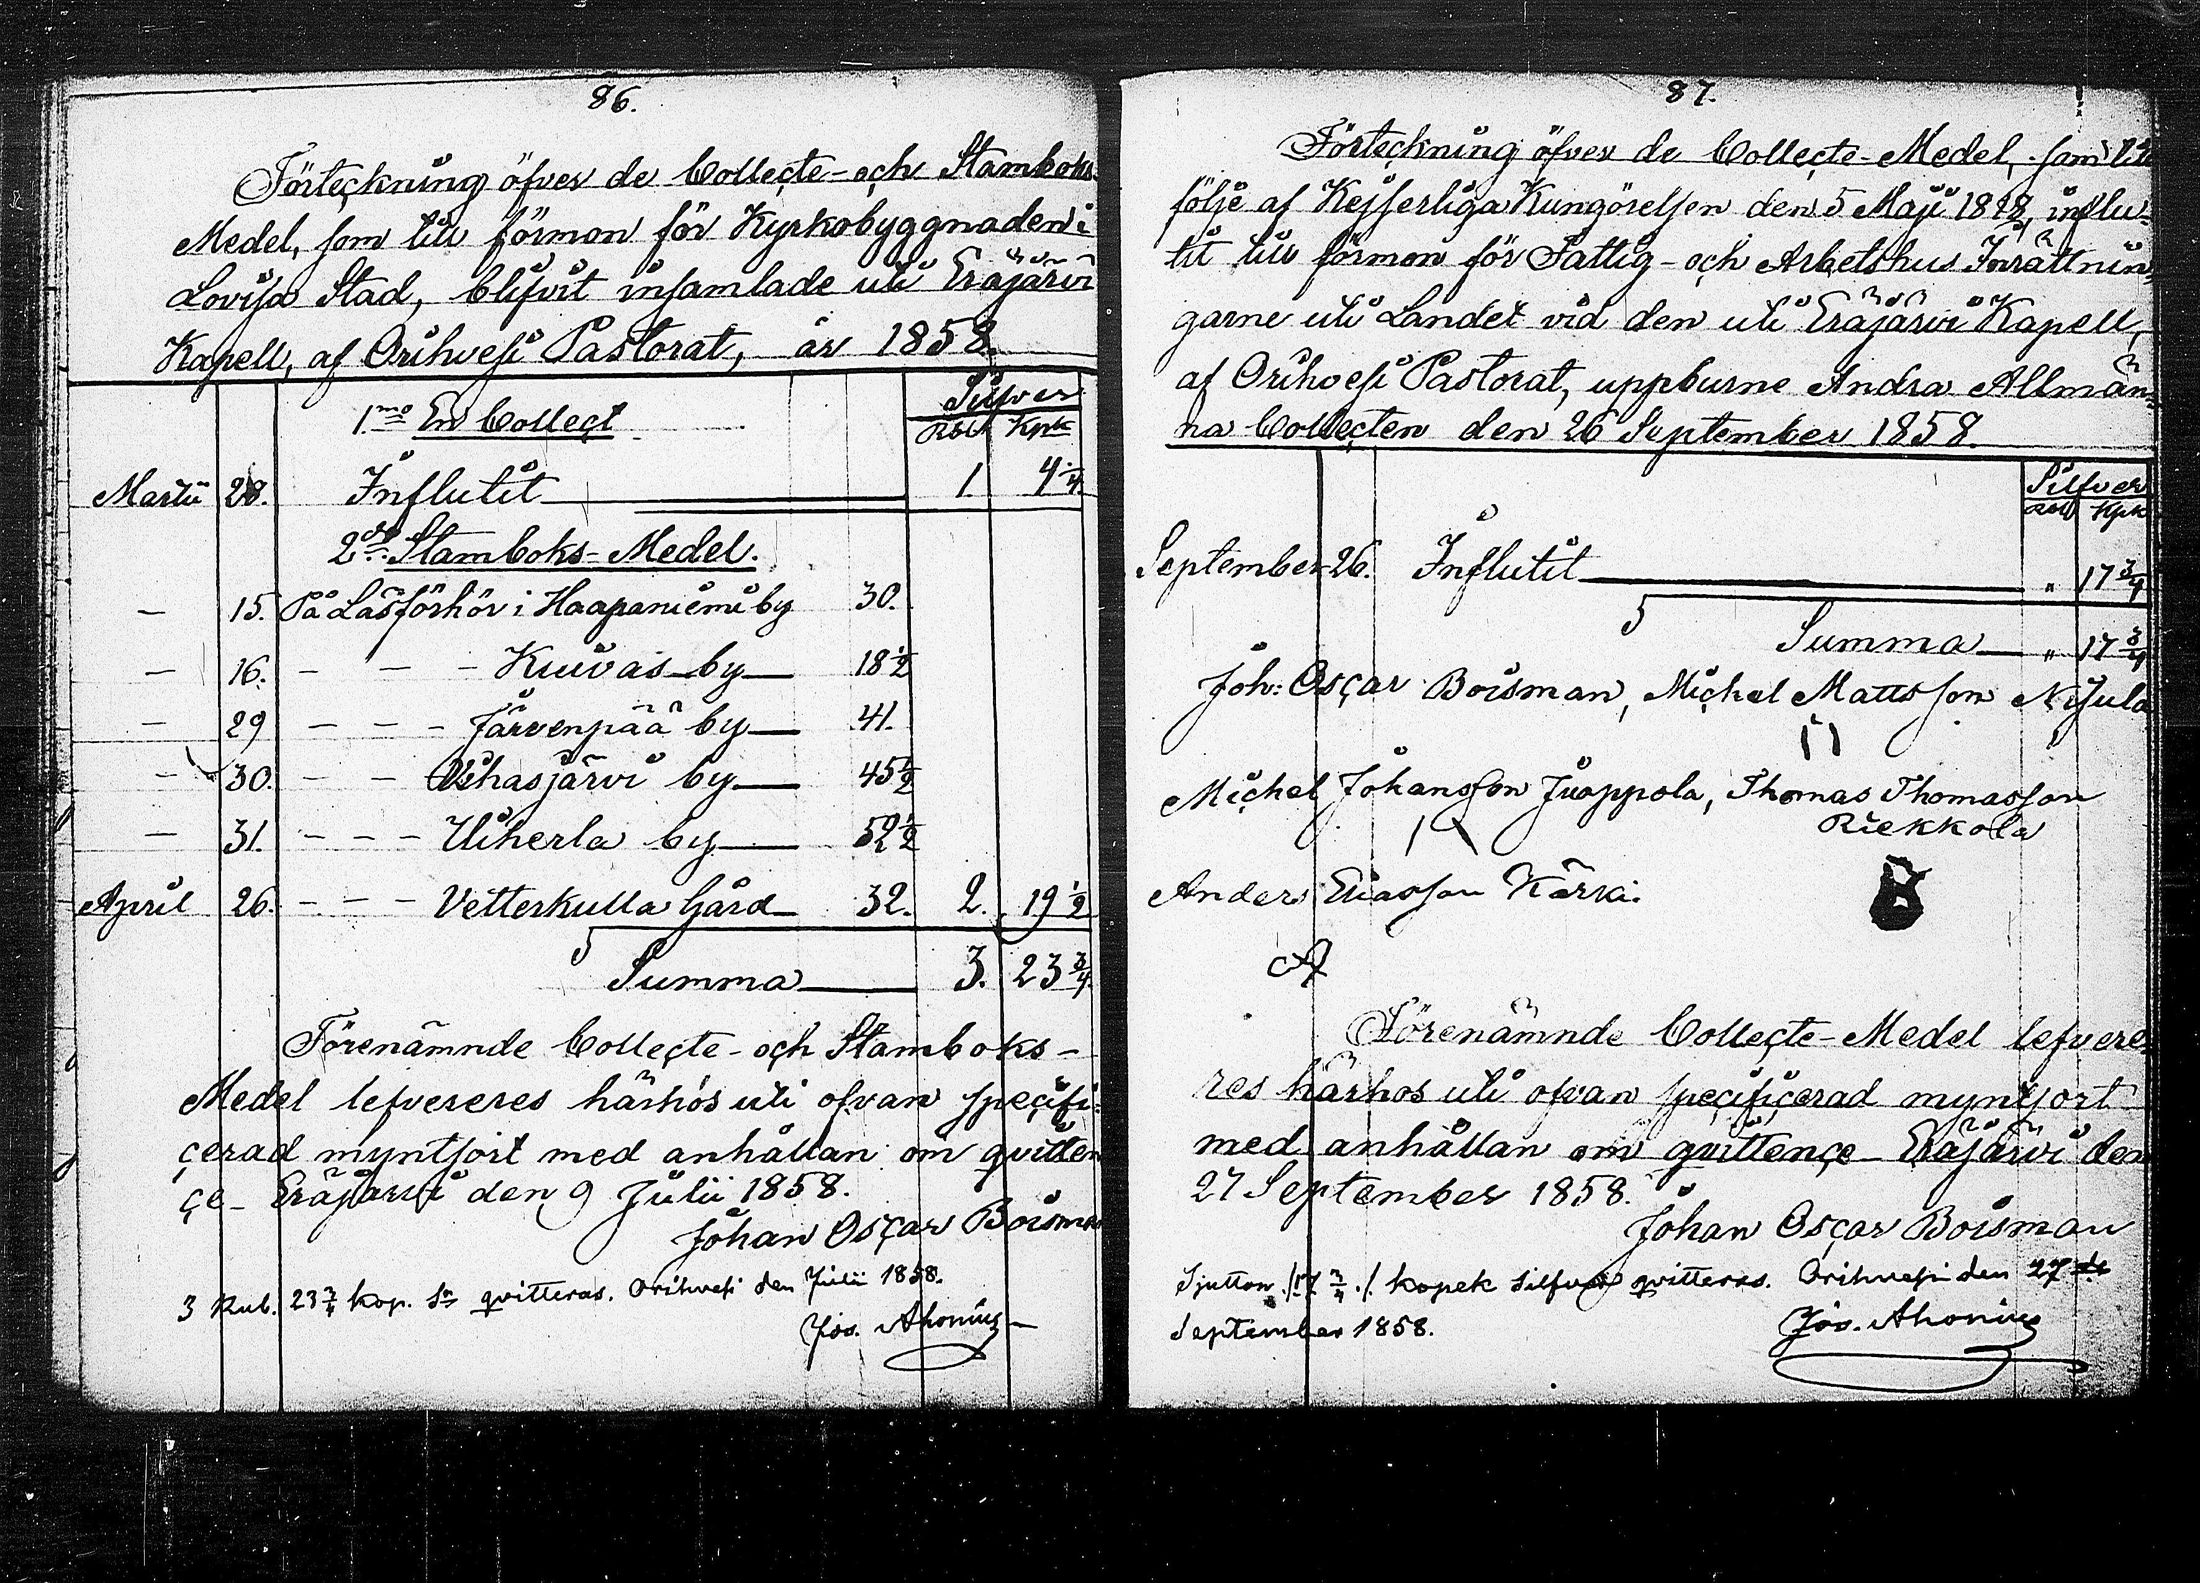 86.
Förteckning öfver de Collecte- och Stamboks-
Medel, som till förmon för Kyrkobyggnaden i
Lovisa Stad, blifvit insamlade uti Eräjärvi
Kapell, af Orihvesi Pastorat, år 1858.
Silfver
1mo En Collect Rbl Kpk
Martii 28. Influtit 1 4 1/4.
2do Stamboks-Medel.
— 15. På Läsförhör i Haapaniemi by 30.
— 16. — — — Kuivais by 18 1/2
— 29 — — — Järvenpää by 41.
— 30. — — Vihasjärvi by 45 1/2
— 31. — — — Uiherla by 52 1/2
April 26. — — — Vetterkulla Gård 32. 2. 19 1/2
Summa 3. 23 3/4.
Förenämnde Collecte- och Stamboks-
Medel lefvereres härhos uti ofvan specifi-
cerad myntsort med anhållan om qvitten
ce - Eräjärvi den 9 Julii 1858.
Johan Oscar Boisman
3 Rub. 23 3/4 kop. Sr qvitteras. Orihvesi den Julii 1858.
Jos. Ahonius
87.
Förteckning öfver de Collecte-Medel, som till
följe af Kejserliga Kungörelsen den 5 Maji 1818, influ-
tit till förmon för Fattig- och Arbetshus Inrättnin-
garne uti Landet vid den uti Eräjärvi Kapell,
af Orihvesi Pastorat, uppburne Andra Allmän-
na Collecten den 26 September 1858.
Silfver
Rbl Kpk
September 26. Influtit " 17 3/4
Summa " 17 3/4
Joh: Oscar Boisman, Michel Mattsson Nijula
Michel Johansson Juoppola, Thomas Thomasson
Riekkola
Anders Eliasson Kärki.
Förenämnde Collecte-Medel lefvere-
res härhos uti ofvan specificerad myntsort
med anhållan om qvittence - Eräjärvi den
27 September 1858.
Johan Oscar Boisman
Sjutton /:17 3/4:/ kopek Silfver qvitteras. Orihvesi den 27de
September 1858.
Jos. Ahonius